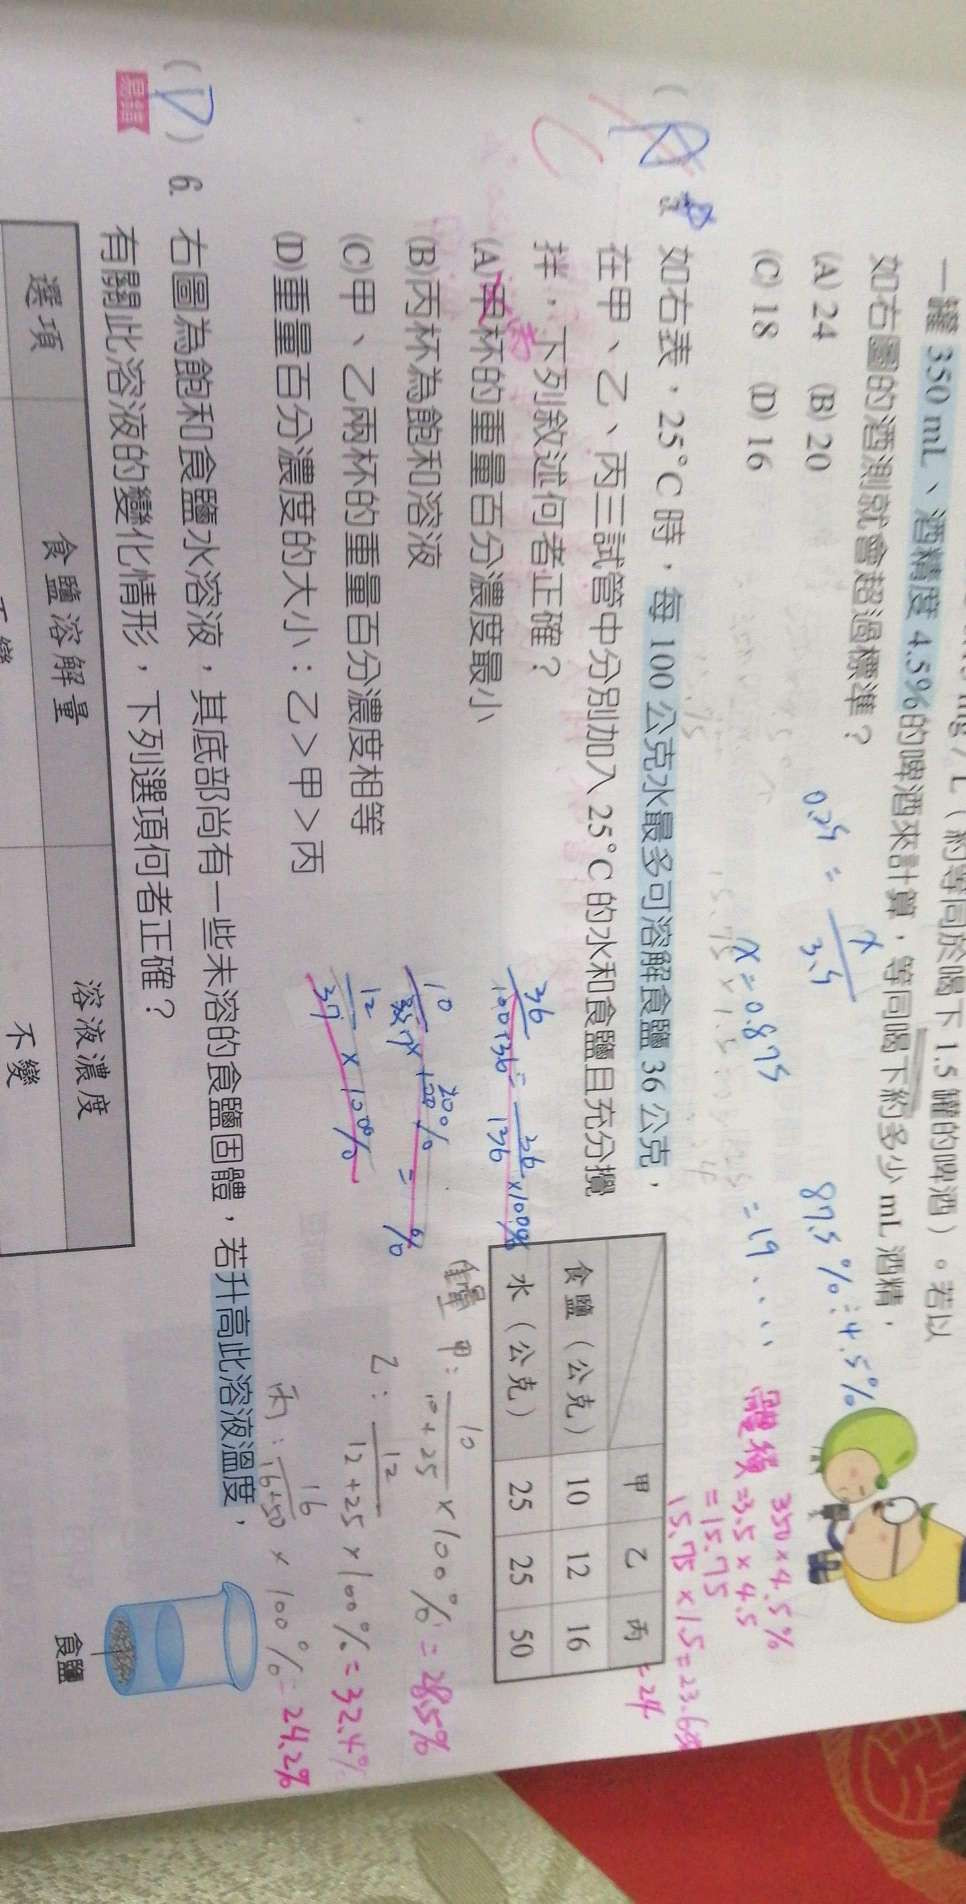 mg/L（約等同於喝下 1.5 罐的啤酒）。若以
一罐 350 mL、酒精度 4.5%的啤酒來計算，等同喝下約多少 mL 酒精，
如右圖的酒測就會超過標準？
(A) 24 (B) 20
(C) 18 (D) 16
0.25 = x/3.5
x = 0.875
87.5%÷4.5%
= 19....
350×4.5%
體積=3.5×4.5
=15.75
15.75×1.5=23.6
=24
如右表，25°C時，每 100 公克水最多可溶解食鹽 36 公克，
在甲、乙、丙三試管中分別加入 25°C的水和食鹽且充分攪
拌，下列敘述何者正確？
C
(A)甲杯的重量百分濃度最小
丙
(B)丙杯為飽和溶液
(C)甲、乙兩杯的重量百分濃度相等
(D)重量百分濃度的大小：乙＞甲＞丙
甲 乙 丙
食鹽（公克） 10 12 16
水（公克） 25 25 50
36/100+36 = 36/136 ×100%
12/37 × 100%
甲：10/10+25 ×100%=28.5%
乙：12/12+25 ×100%=32.4%
丙：16/16+50 ×100%=24.2%
(D) 6. 右圖為飽和食鹽水溶液，其底部尚有一些未溶的食鹽固體，若升高此溶液溫度，
易錯
有關此溶液的變化情形，下列選項何者正確？
食鹽
選項 食鹽溶解量 溶液濃度
不變 不變